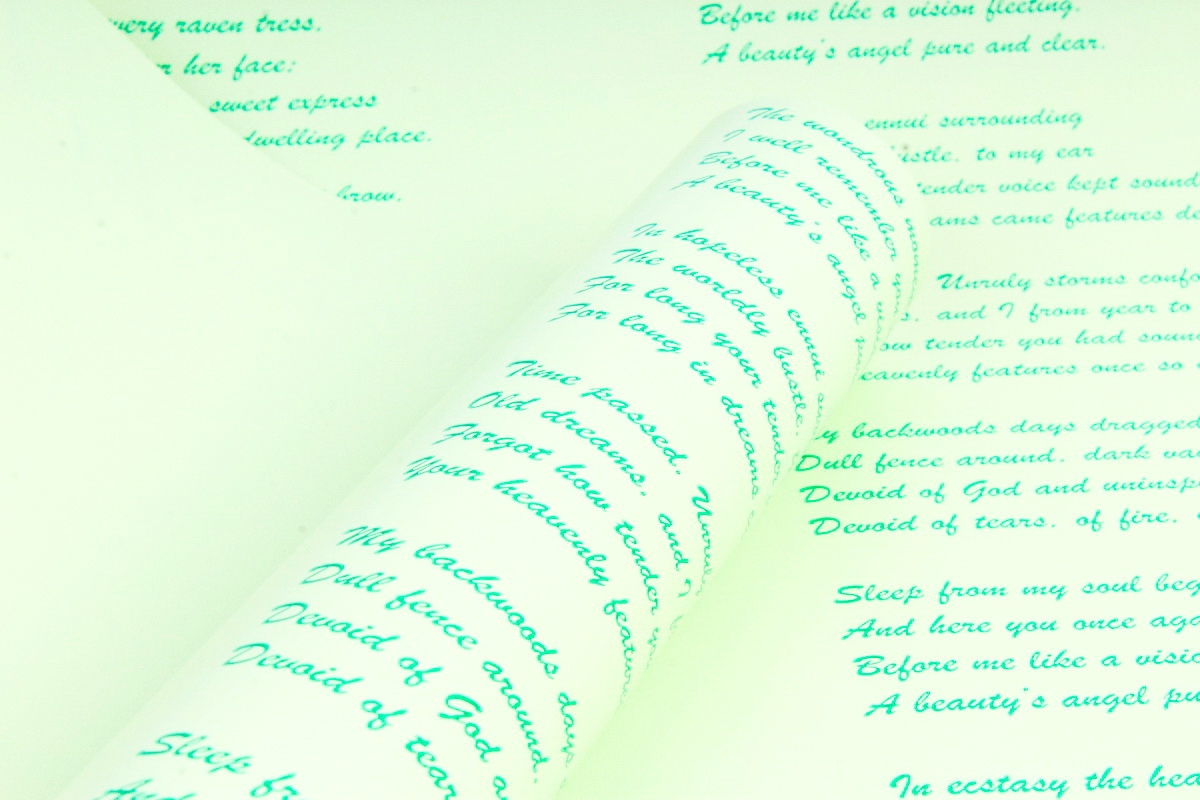 very raven tress,
her face:
sweet express
dwelling place.
brow.
The wondrous
I well remember
Before me like a
A beauty's angel
In hopeless ennui
The worldly bustle.
For long your tender
For long in dreams
Time passed. Unruly
Old dreams. and I
Forgot how tender
Your heavenly
My backwoods days
Dull fence around.
Devoid of God
Devoid of
Sleep
And
Before me like a vision fleeting.
A beauty's angel pure and clear.
ennui surrounding
to my ear
tender voice kept
came features
Unruly storms
and I from year to
tender you had
features once so
backwoods days dragged
Dull fence around. dark
Devoid of God and
Devoid of tears. of fire.
Sleep from my soul
And here you once
Before me like a
A beauty's angel
In ecstasy the